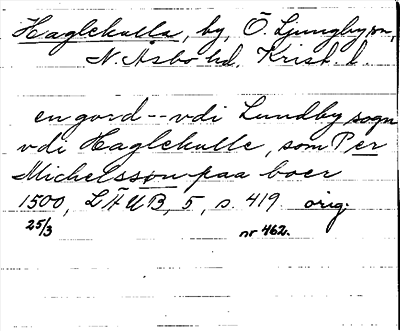 Haglekulla, by, Ö. Ljungby sn,
N. Åsbo hd. Krist. l.
en gord -- vdi Lundby sogn
vdi Haglekulle, som Per
Michelsson paa boer
1500, LÄUB, 5, s. 419. orig.
25/3
nr 462.